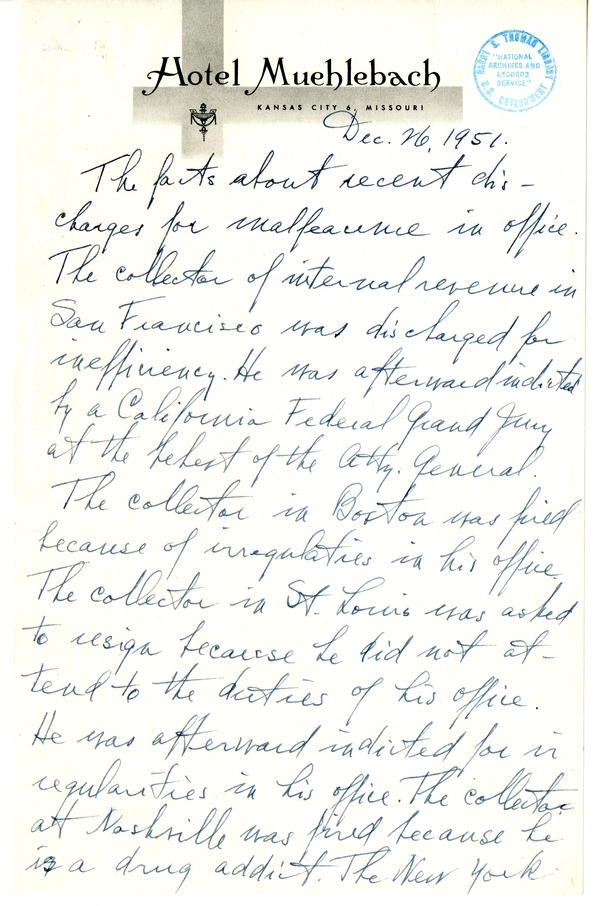 Hotel Muehlebach
KANSAS CITY 6, MISSOURI
HARRY S. TRUMAN LIBRARY
"NATIONAL
ARCHIVES AND
RECORDS
SERVICE"
U.S. GOVERNMENT
Dec. 26, 1951.
The facts about recent dis-
charges for malfeasance in office.
The collector of internal revenue in
San Francisco was discharged for
inefficiency. He was afterward indicted
by a California Federal Grand Jury
at the behest of the Atty. General.
The collector in Boston was fired
because of irregulaties in his office.
The collector in St. Louis was asked
to resign because he did not at-
tend to the duties of his office.
He was afterward indicted for ir
regularities in his office. The collector
at Nashville was fired because he
is a drug addict. The New York